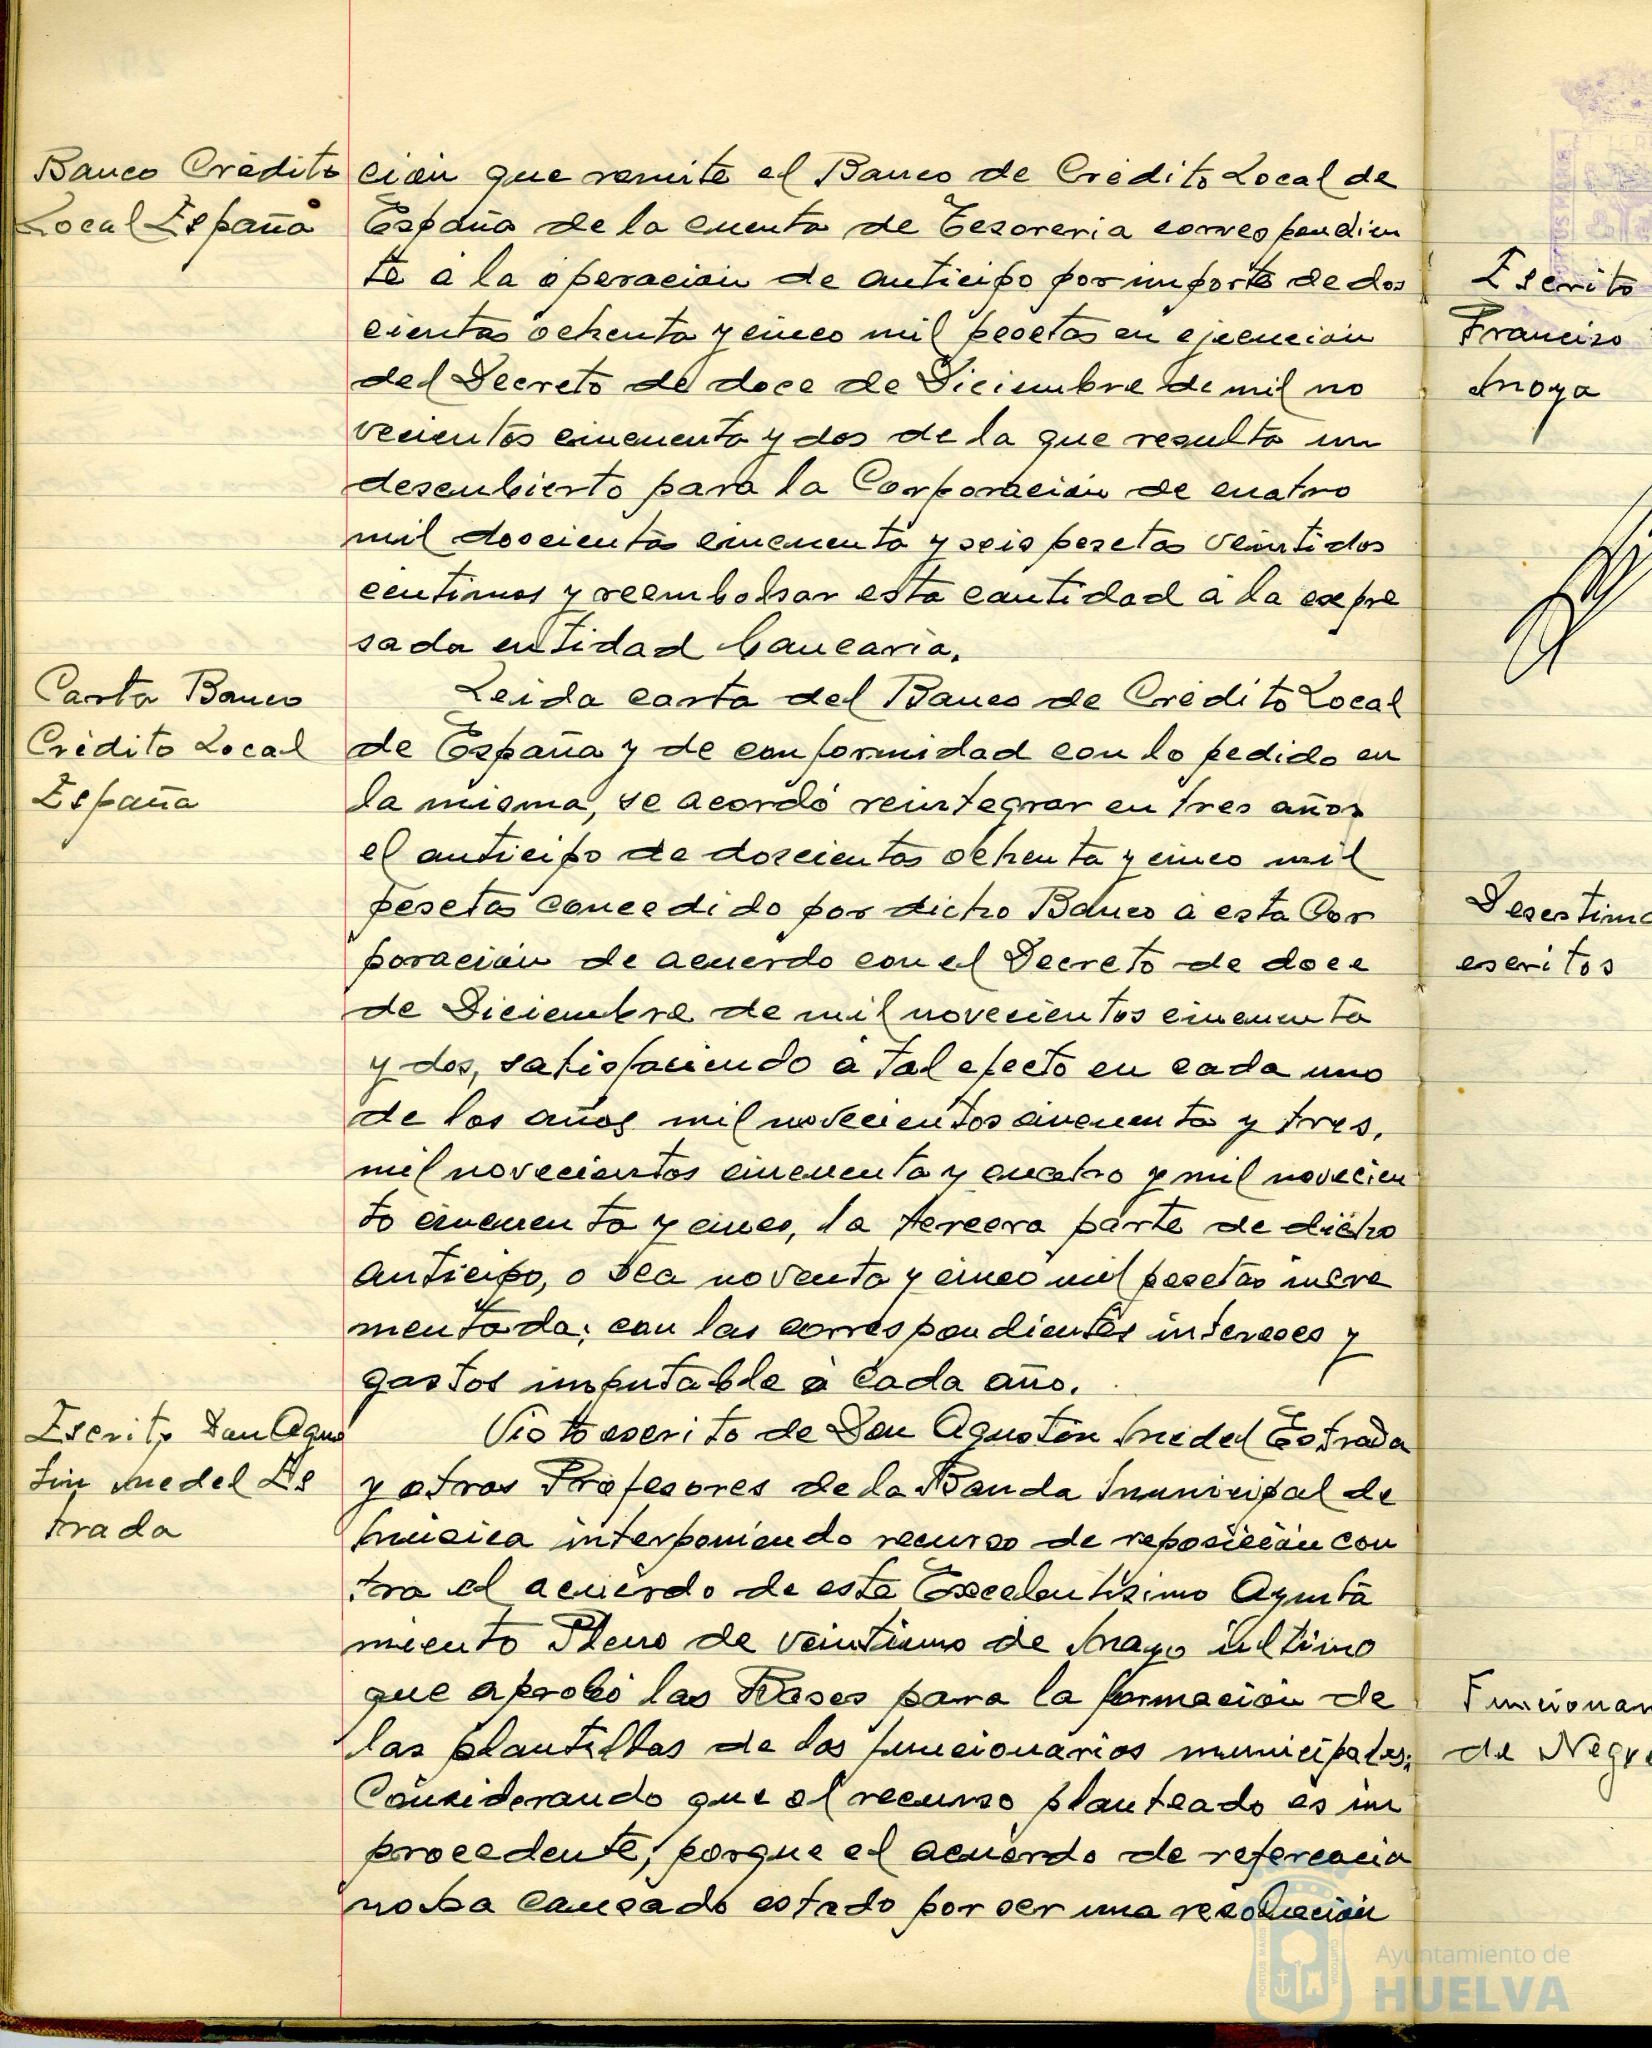 Banco Crédito
Local España
ción que remite el Banco de Crédito Local de
España de la cuenta de Tesoreria correspondien
te á la operación de anticipo por importe de dos
cientas ochenta y cinco mil pesetas en ejecución
del Decreto de doce de Diciembre de mil no
vecientos cincuenta y dos de la que resulta un
descubierto para la Corporación de cuatro
mil doscientas cincuenta y seis pesetas veintidos
centimos y reembolsar esta cantidad á la expre
sada entidad bancaria.
Carta Banco
Crédito Local
España
Leida carta del Banco de Crédito Local
de España y de conformidad con lo pedido en
la misma, se acordó reintegrar en tres años
el anticipo de doscientas ochenta y cinco mil
pesetas concedido por dicho Banco á esta Cor
poración de acuerdo con el Decreto de doce
de Diciembre de mil novecientos cincuenta
y dos, satisfaciendo á tal efecto en cada uno
de los años mil novecientos cincuenta y tres,
mil novecientos cincuenta y cuatro y mil novecien
to cincuenta y cinco, la tercera parte de dicho
anticipo, o sea noventa y cinco mil pesetas incre
mentada; con las correspondientes intereses y
gastos imputable á cada año.
Escrito Don Agus
tin Medel Es
trada
Visto escrito de Don Agustin Medel Estrada
y otros Profesores de la Banda Municipal de
Música interponiendo recurso de reposición con
tra el acuerdo de este Excelentisimo Ayunta
miento Pleno de veintiuno de Mayo último
que aprobó las Bases para la formación de
las plantillas de los funcionarios municipales;
Considerando que el recurso planteado es im
procedente, porque el acuerdo de referencia
no ha causado estado por ser una resolución
Escrito
Francisco
Moya
Desestima
escritos
Funcionar
de Negr
Ayuntamiento de
HUELVA